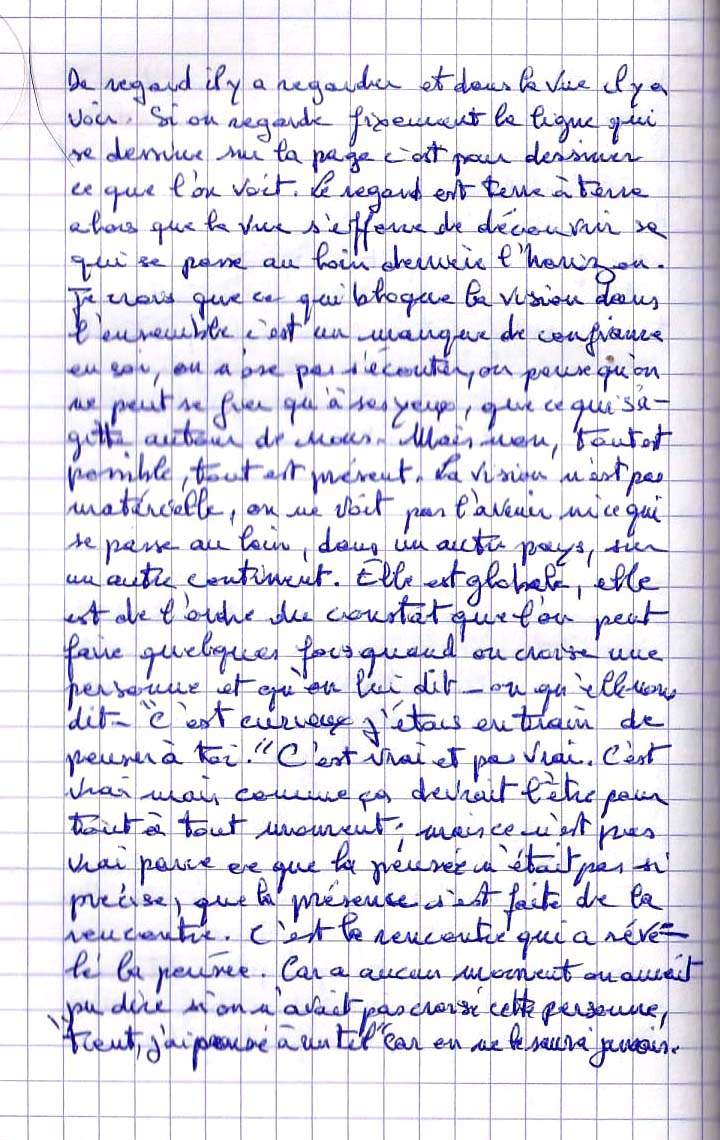 De regard il y a regarder et dans la vue il y a
voir. Si on regarde fixement la ligne qui
se dessine sur la page c'est pour dessiner
ce que l'on voit. Le regard est terre à terre
alors que la vue s'efforce de découvrir se
qui se passe au loin derrière l'horizon.
Je crois que ce qui bloque la vision dans
l'ensemble c'est un manque de confiance
en soi, on n'ose pas s'écouter, on pense qu'on
ne peut se fier qu'à ses yeux, que ce qui s'a-
gitte autour de nous. Mais non, tout est
possible, tout est présent. La vision n'est pas
matérielle, on ne voit pas l'avenir ni ce qui
se passe au loin, dans un autre pays, sur
un autre continent. Elle est globale, elle
est de l'ordre du constat que l'on peut
faire quelques fois quand on croise une
personne et qu'on lui dit - ou qu'elle nous
dit - "C'est curieux j'étais en train de
penser à toi." C'est vrai et pas vrai. C'est
vrai mais comme ça devrait l'être pour
tout à tout moment ; mais ce n'est pas
vrai parce ce que la pensée n'était pas si
précise, que la présence s'est faite de la
rencontre. C'est la rencontre qui a révé-
lé la pensée. Car a aucun moment on aurait
pu dire si on n'avait pas croisé cette personne,
"tient, j'ai pensé à un tel" car on ne le saura jamais.